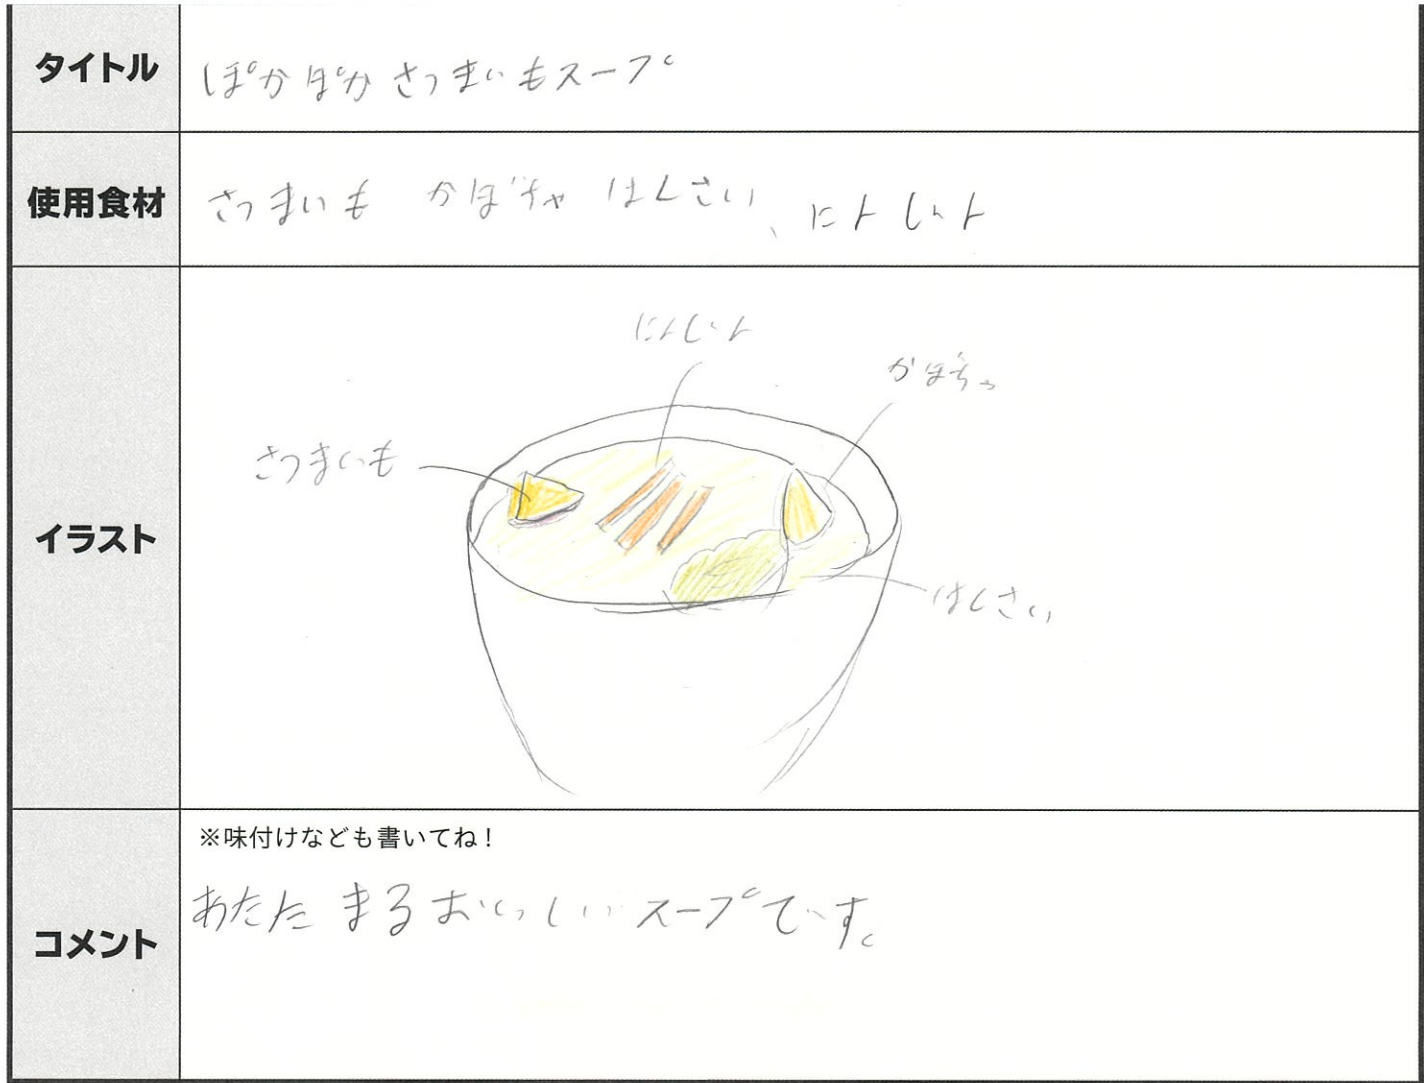 タイトル
ぽかぽかさつまいもスープ
使用食材
さつまいも かぼちゃ はくさい、にんじん
イラスト
にんじん
かぼちゃ
さつまいも
はくさい
※味付けなども書いてね!
コメント
あたたまるおいしいスープです。